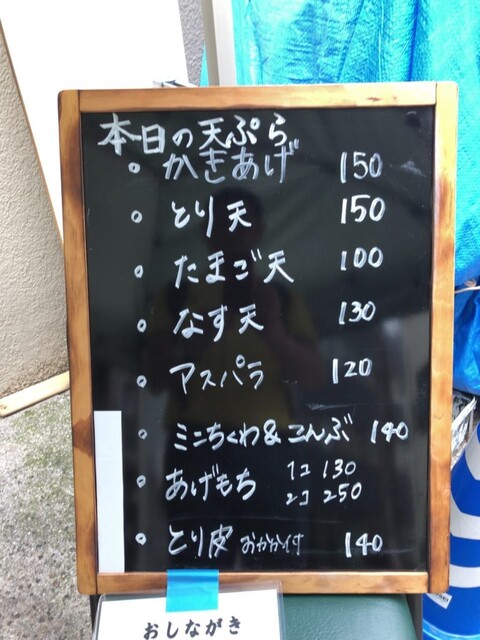 本日の天ぷら
・かきあげ 150
・とり天 150
・たまご天 100
・なす天 130
・アスパラ 120
・ミニちくわ&こんぶ 140
・あげもち 1コ 130
2コ 250
・とり皮 おかか付 140
おしながき